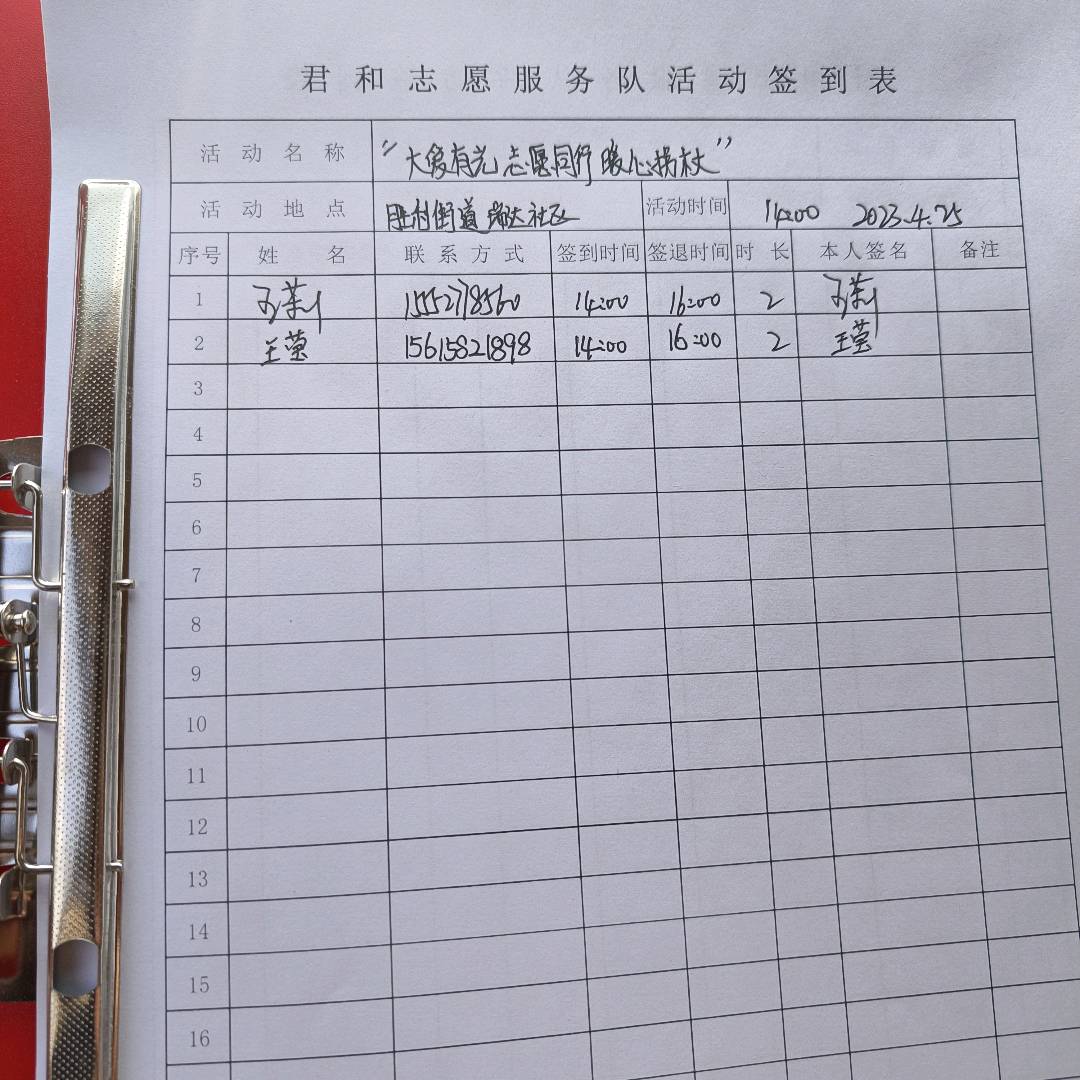 君和志愿服务队活动签到表
活动名称 “大爱有光 志愿同行 暖心拐杖”
活动地点 胜利街道 瑞达社区 活动时间 14:00 2023.4.25
序号 姓名 联系方式 签到时间 签退时间 时长 本人签名 备注
1 15527718560 14:00 16:00 2
2 王莹 15615821898 14:00 16:00 2 王莹
3
4
5
6
7
8
9
10
11
12
13
14
15
16